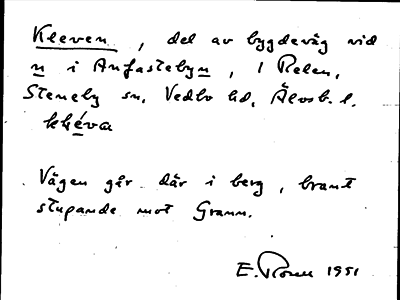 Kleven, del av bygdeväg vid
n i Anfastebyn, 1 Relen,
Steneby sn, Vedbo hd, Älvsb. l.
kléva
Vägen går där i berg, brant
stupande mot Grann.
E. 1951